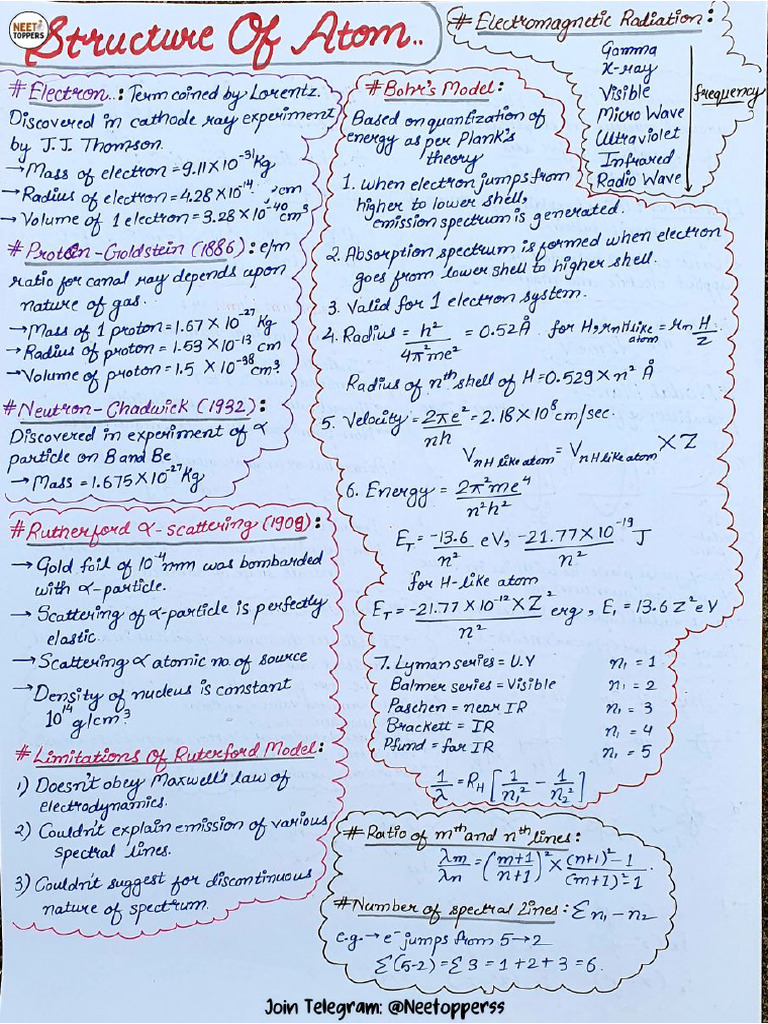 NEET TOPPERS
Structure Of Atom..
# Electron..: Term coined by Lorentz.
Discovered in cathode ray experiment
by J.J. Thomson.
→ Mass of electron = 9.11×10⁻³¹ kg
→ Radius of electron = 4.28×10⁻¹⁴ cm
→ Volume of 1 electron = 3.28×10⁻⁴⁰ cm³
# Protoin - Goldstein (1886): e/m
ratio for canal ray depends upon
nature of gas.
→ Mass of 1 proton = 1.67×10⁻²⁷ kg
→ Radius of proton = 1.53×10⁻¹³ cm
→ Volume of proton = 1.5 ×10⁻³⁸ cm³
# Neutron - Chadwick (1932):
Discovered in experiment of α
particle on B and Be
→ Mass = 1.675×10⁻²⁷ Kg
# Rutherford α-scattering (1909):
→ Gold foil of 10⁻⁴ mm was bombarded
with α-particle.
→ Scattering of α-particle is perfectly
elastic.
→ Scattering ∝ atomic no. of source
→ Density of nucleus is constant
10¹⁴ g/cm³
# Limitations Of Ruterford Model:
1) Doesn't obey Maxwell's law of
electrodynamics.
2) Couldn't explain emission of various
spectral lines.
3) Couldn't suggest for discontinuous
nature of spectrum.
# Electromagnetic Radiation:
Gamma
X-ray
Visible
Micro Wave
Ultraviolet
Infrared
Radio Wave
frequency
# Bohr's Model:
Based on quantization of
energy as per Plank's
theory
1. when electron jumps from
higher to lower shell,
emission spectrum is generated.
2. Absorption spectrum is formed when electron
goes from lower shell to higher shell.
3. Valid for 1 electron system.
4. Radius = h²/4π²me² = 0.52Å for H, rnH like atom = rn H/z
Radius of nth shell of H = 0.529×n² Å
5. Velocity = 2πe²/nh = 2.18×10⁸ cm/sec.
VnH like atom = VnH like atom × Z
6. Energy = 2π²me⁴/n²h²
E_T = -13.6/n² eV, -21.77×10⁻¹⁹/n² J
for H-like atom
E_T = -21.77×10⁻¹²×Z²/n² erg, E₁ = 13.6 Z² eV
7. Lyman series = U.V n₁ = 1
Balmer series = Visible n₁ = 2
Paschen = near IR n₁ = 3
Brackett = IR n₁ = 4
Pfund = far IR n₁ = 5
1/λ = R_H [1/n₁² - 1/n₂²]
# Ratio of mth and nth lines:
λm/λn = (m+1/n+1)² × (n+1)²-1/(m+1)²-1.
# Number of spectral Lines: Σn₁-n₂
e.g. → e⁻ jumps from 5→2
Σ(5-2) = Σ3 = 1+2+3 = 6.
Join Telegram: @Neetopperss